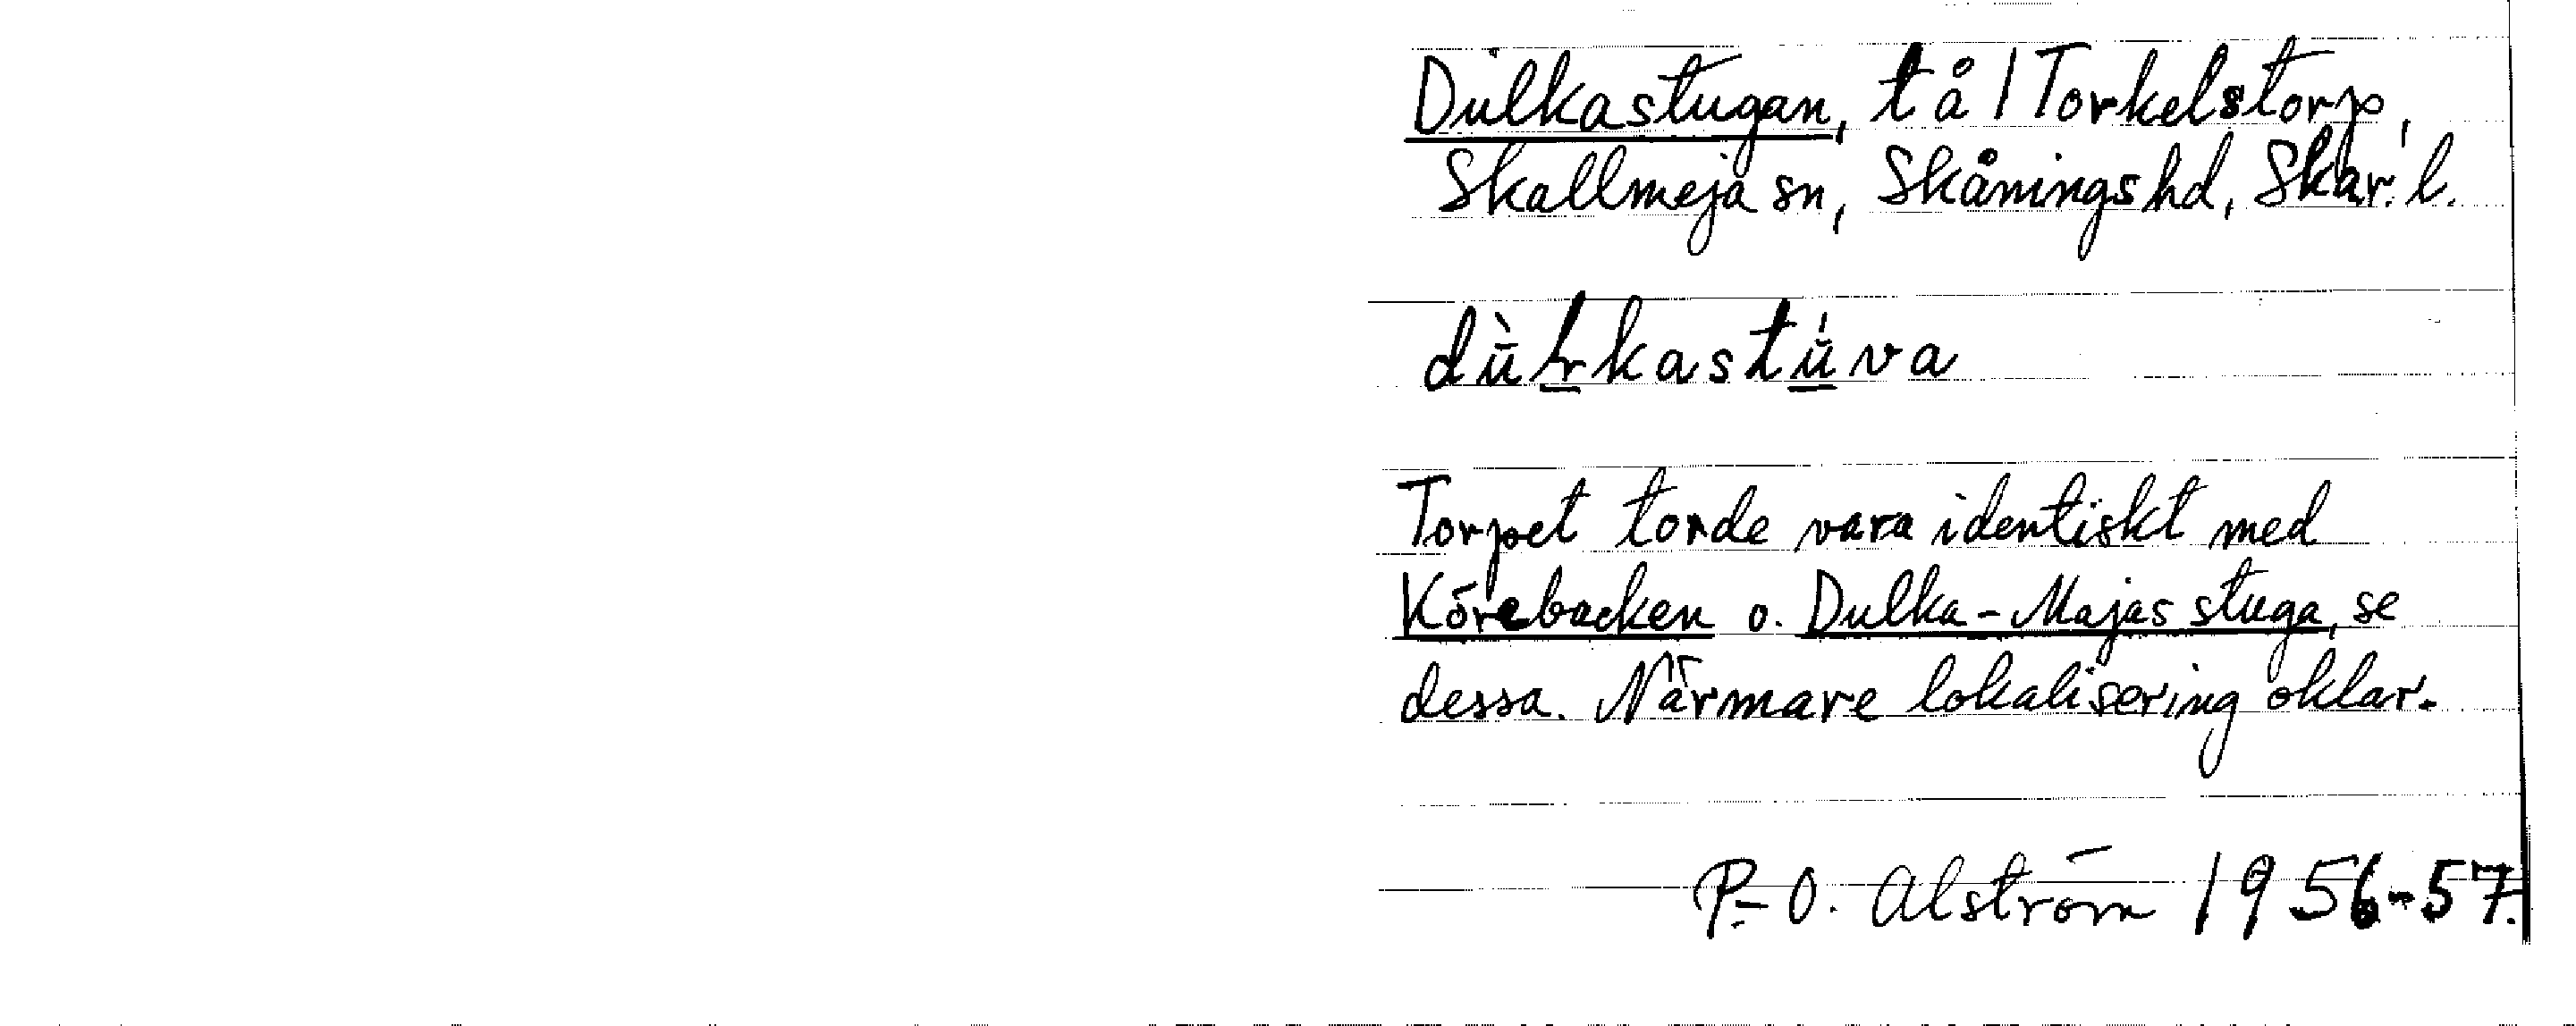 Dulkastugan, t å / Torkelstorp,
Skallmeja sn, Skånings hd, Skar. l.
Torpet torde vara identiskt med
Körebacken o. Dulka-Majas stuga, se
dessa. Närmare lokalisering oklar.
P.-O. Alström 1956-57.